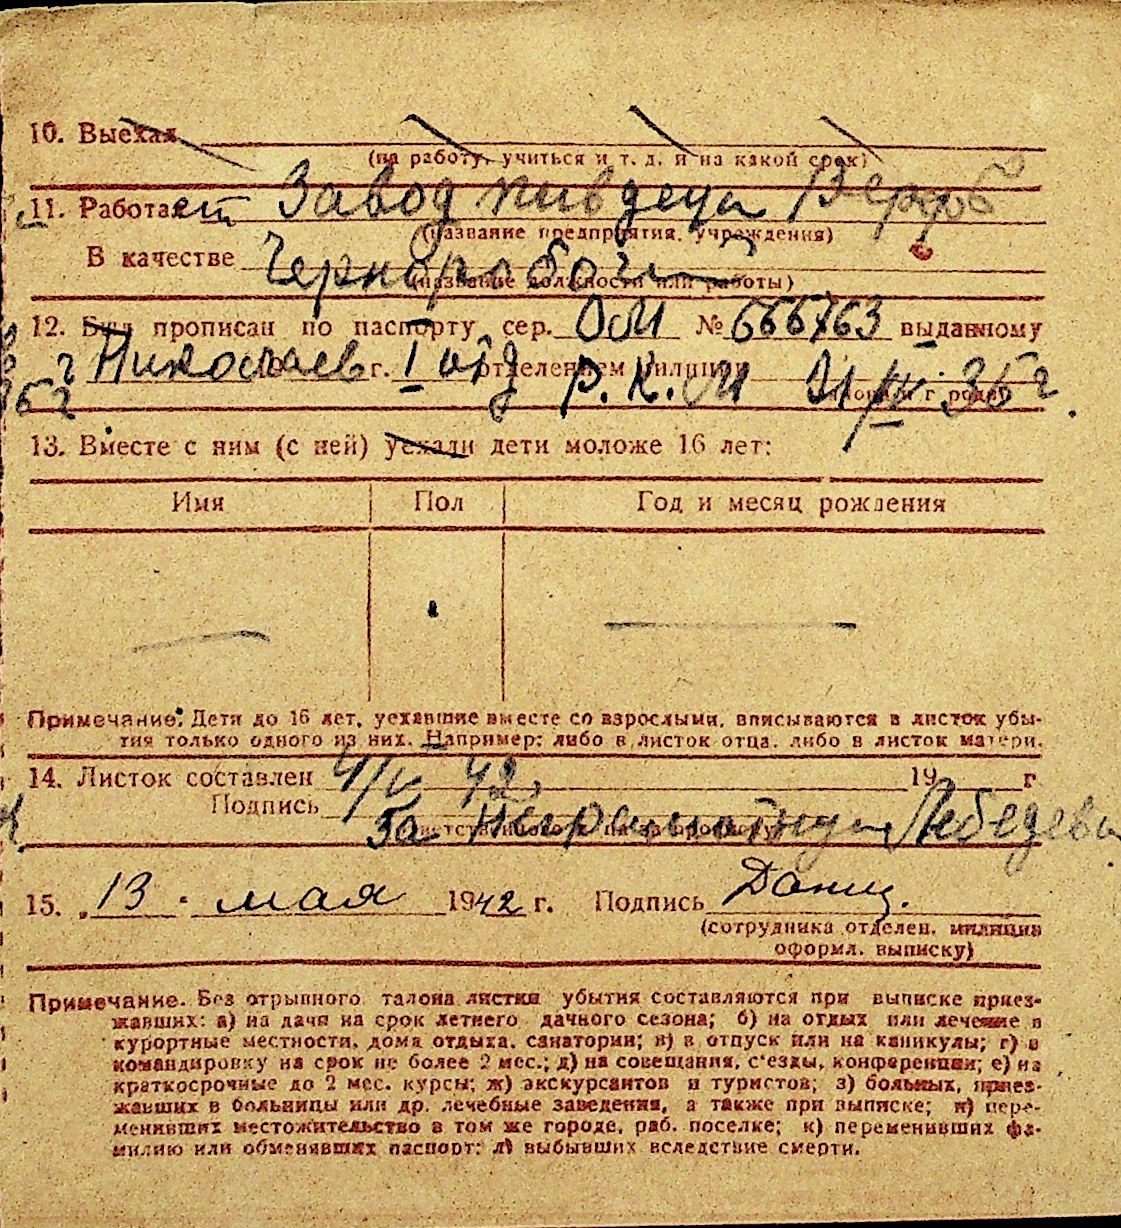 10. Выехал
(на работу, учиться и т. д. и на какой срок)
11. Работает Завод
(название предприятия, учреждения)
В качестве Чернорабочий
(название должности или работы)
12. Был прописан по паспорту сер. № 666763 выданному
г Николаев г. I отд отделением милиции Р. К. М
13. Вместе с ним (с ней) уехали дети моложе 16 лет:
Имя Пол Год и месяц рождения
Примечание: Дети до 16 лет, уехавшие вместе со взрослыми, вписываются в листок убы-
тия только одного из них. Например: либо в листок отца, либо в листок матери.
14. Листок составлен 4/V 42. 19 г
Подпись За Неграмотную Лебедева
15. „13 " мая 1942 г. Подпись
(сотрудника отделен. милиции
оформл. выписку)
Примечание. Без отрывного талона листки убытия составляются при выписке приез-
жавших: а) на дачи на срок летнего дачного сезона; б) на отдых или лечение в
курортные местности, дома отдыха, санатории; в) в отпуск или на каникулы; г) в
командировку на срок не более 2 мес.; д) на совещания, с'езды, конференции; е) на
краткосрочные до 2 мес. курсы; ж) экскурсантов и туристов; з) больных, приез-
жавших в больницы или др. лечебные заведения, а также при выписке; и) пере-
менивших местожительство в том же городе, раб. поселке; к) переменивших фа-
милию или обменявших паспорт; л) выбывших вследствие смерти.